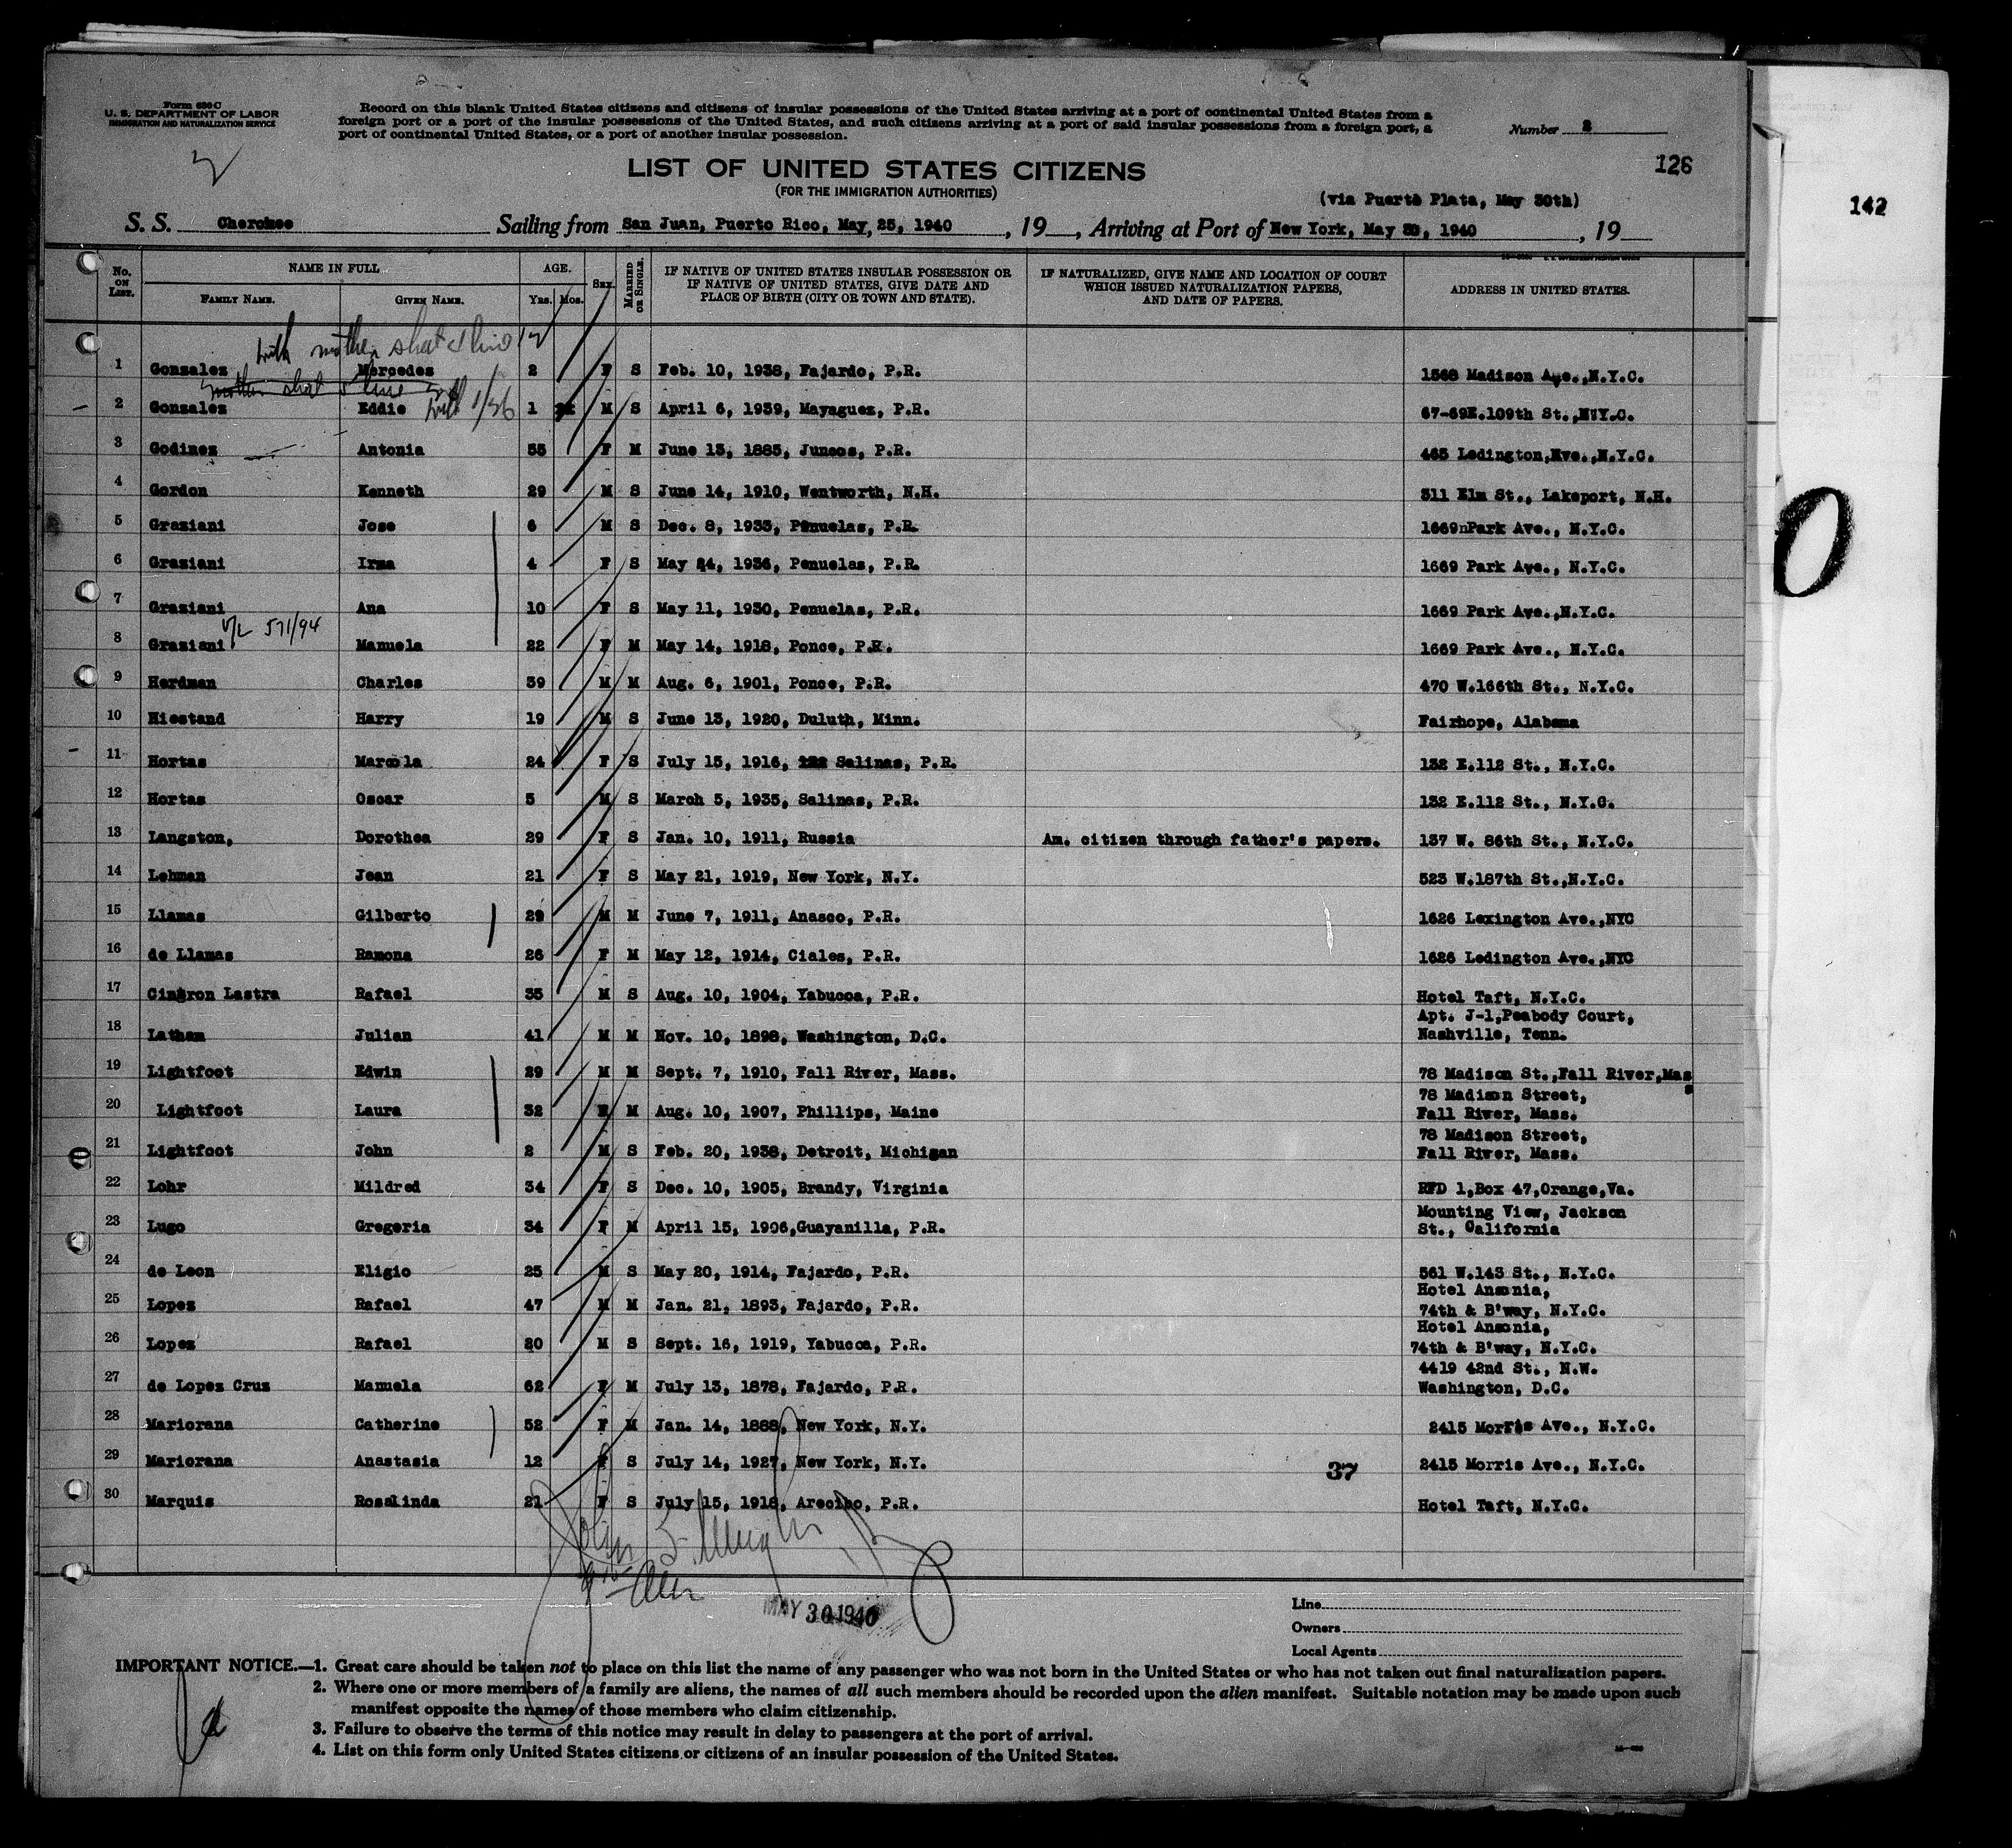 Form 630 C
U. S. DEPARTMENT OF LABOR
IMMIGRATION AND NATURALIZATION SERVICE
Record on this blank United States citizens and citizens of insular possessions of the United States arriving at a port of continental United States from a
foreign port or a port of the insular possessions of the United States, and such citizens arriving at a port of said insular possessions from a foreign port, a
port of continental United States, or a port of another insular possession.
Number 2
126
142
LIST OF UNITED STATES CITIZENS
(FOR THE IMMIGRATION AUTHORITIES)
(via Puerto Plata, May 30th)
S. S. Cherokee Sailing from San Juan, Puerto Rico, May, 25, 1940, 19__, Arriving at Port of New York, May , 1940, 19__
No. ON LIST. NAME IN FULL FAMILY NAME. GIVEN NAME. AGE. Yrs. Mos. SEX. MARRIED OR SINGLE. IF NATIVE OF UNITED STATES INSULAR POSSESSION OR IF NATIVE OF UNITED STATES, GIVE DATE AND PLACE OF BIRTH (CITY OR TOWN AND STATE). IF NATURALIZED, GIVE NAME AND LOCATION OF COURT WHICH ISSUED NATURALIZATION PAPERS, AND DATE OF PAPERS. ADDRESS IN UNITED STATES.
with mother sheet 1 line 12
1 Gonzalez Mercedes 2 F S Feb. 10, 1938, Fajardo, P.R. 1568 Madison Ave.,N.Y.C.
mother sheet line
with 1/26
2 Gonzalez Eddie 1 M S April 6, 1939, Mayaguez, P.R. 67-69E.109th St.,N.Y.C.
3 Godinez Antonia 55 F M June 13, 1885, Juncos, P.R. 465 Ledington,Ave.,N.Y.C.
4 Gordon Kenneth 29 M S June 14, 1910, Wentworth, N.H. 311 Elm St., Lakeport, N.H.
5 Graziani Jose 6 M S Dec. 8, 1933, Penuelas, P.R. 1669nPark Ave., N.Y.C.
6 Graziani Irma 4 F S May 24, 1936, Penuelas, P.R. 1669 Park Ave., N.Y.C.
7 Graziani Ana 10 F S May 11, 1930, Penuelas, P.R. 1669 Park Ave.,N.Y.C.
V/L 571/94
8 Graziani Manuela 22 F M May 14, 1918, Ponce, P.R. 1669 Park Ave., N.Y.C.
9 Herdman Charles 39 M M Aug. 6, 1901, Ponce, P.R. 470 W.166th St., N.Y.C.
10 Hiestand Harry 19 M S June 13, 1920, Duluth, Minn. Fairhope, Alabama
11 Hortas Marcola 24 F S July 15, 1916, Salinas, P.R. 132 E.112 St., N.Y.C.
12 Hortas Oscar 5 M S March 5, 1935, Salinas, P.R. 132 E.112 St., N.Y.C.
13 Langston, Dorothea 29 F S Jan. 10, 1911, Russia Am. citizen through father's papers. 137 W. 86th St., N.Y.C.
14 Lehman Jean 21 F S May 21, 1919, New York, N.Y. 523 W.187th St.,N.Y.C.
15 Llamas Gilberto 29 M M June 7, 1911, Anasco, P.R. 1626 Lexington Ave.,NYC
16 de Llamas Ramona 26 F M May 12, 1914, Ciales, P.R. 1626 Ledington Ave.,NYC
17 Cintron Lastra Rafael 35 M S Aug. 10, 1904, Yabucoa, P.R. Hotel Taft, N.Y.C.
Apt. J-1,Peabody Court,
18 Latham Julian 41 M M Nov. 10, 1898, Washington, D.C. Nashville, Tenn.
19 Lightfoot Edwin 29 M M Sept. 7, 1910, Fall River, Mass. 78 Madison St.,Fall River,Mass
78 Madison Street,
20 Lightfoot Laura 32 F M Aug. 10, 1907, Phillips, Maine Fall River, Mass.
78 Madison Street,
21 Lightfoot John 2 M S Feb. 20, 1938, Detroit, Michigan Fall River, Mass.
22 Lohr Mildred 34 F S Dec. 10, 1905, Brandy, Virginia RFD 1,Box 47,Orange,Va.
Mounting View, Jackson
23 Lugo Gregoria 34 F M April 15, 1906,Guayanilla, P.R. St., California
24 de Leon Eligio 25 M S May 20, 1914, Fajardo, P.R. 561 W.143 St., N.Y.C.
Hotel Ansonia,
25 Lopez Rafael 47 M M Jan. 21, 1893, Fajardo, P.R. 74th & B'way, N.Y.C.
Hotel Ansonia,
26 Lopez Rafael 20 M S Sept. 16, 1919, Yabucoa, P.R. 74th & B'way, N.Y.C.
4419 42nd St., N.W.
27 de Lopez Cruz Manuela 62 F M July 13, 1878, Fajardo, P.R. Washington, D.C.
28 Mariorana Catherine 52 F M Jan. 14, 1888, New York, N.Y. 2415 Morris Ave., N.Y.C.
29 Mariorana Anastasia 12 F S July 14, 1927, New York, N.Y. 37 2415 Morris Ave., N.Y.C.
30 Marquis Rosalinda 21 F S July 15, 1918, Arecibo, P.R. Hotel Taft, N.Y.C.
MAY 30 1940
Line
Owners
Local Agents
IMPORTANT NOTICE.—1. Great care should be taken not to place on this list the name of any passenger who was not born in the United States or who has not taken out final naturalization papers.
2. Where one or more members of a family are aliens, the names of all such members should be recorded upon the alien manifest. Suitable notation may be made upon such
manifest opposite the names of those members who claim citizenship.
3. Failure to observe the terms of this notice may result in delay to passengers at the port of arrival.
4. List on this form only United States citizens or citizens of an insular possession of the United States.